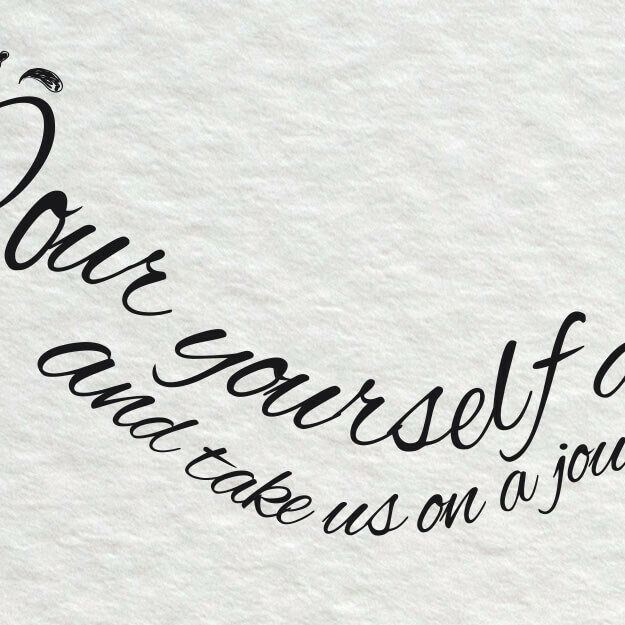 Pour yourself
and take us on a jou